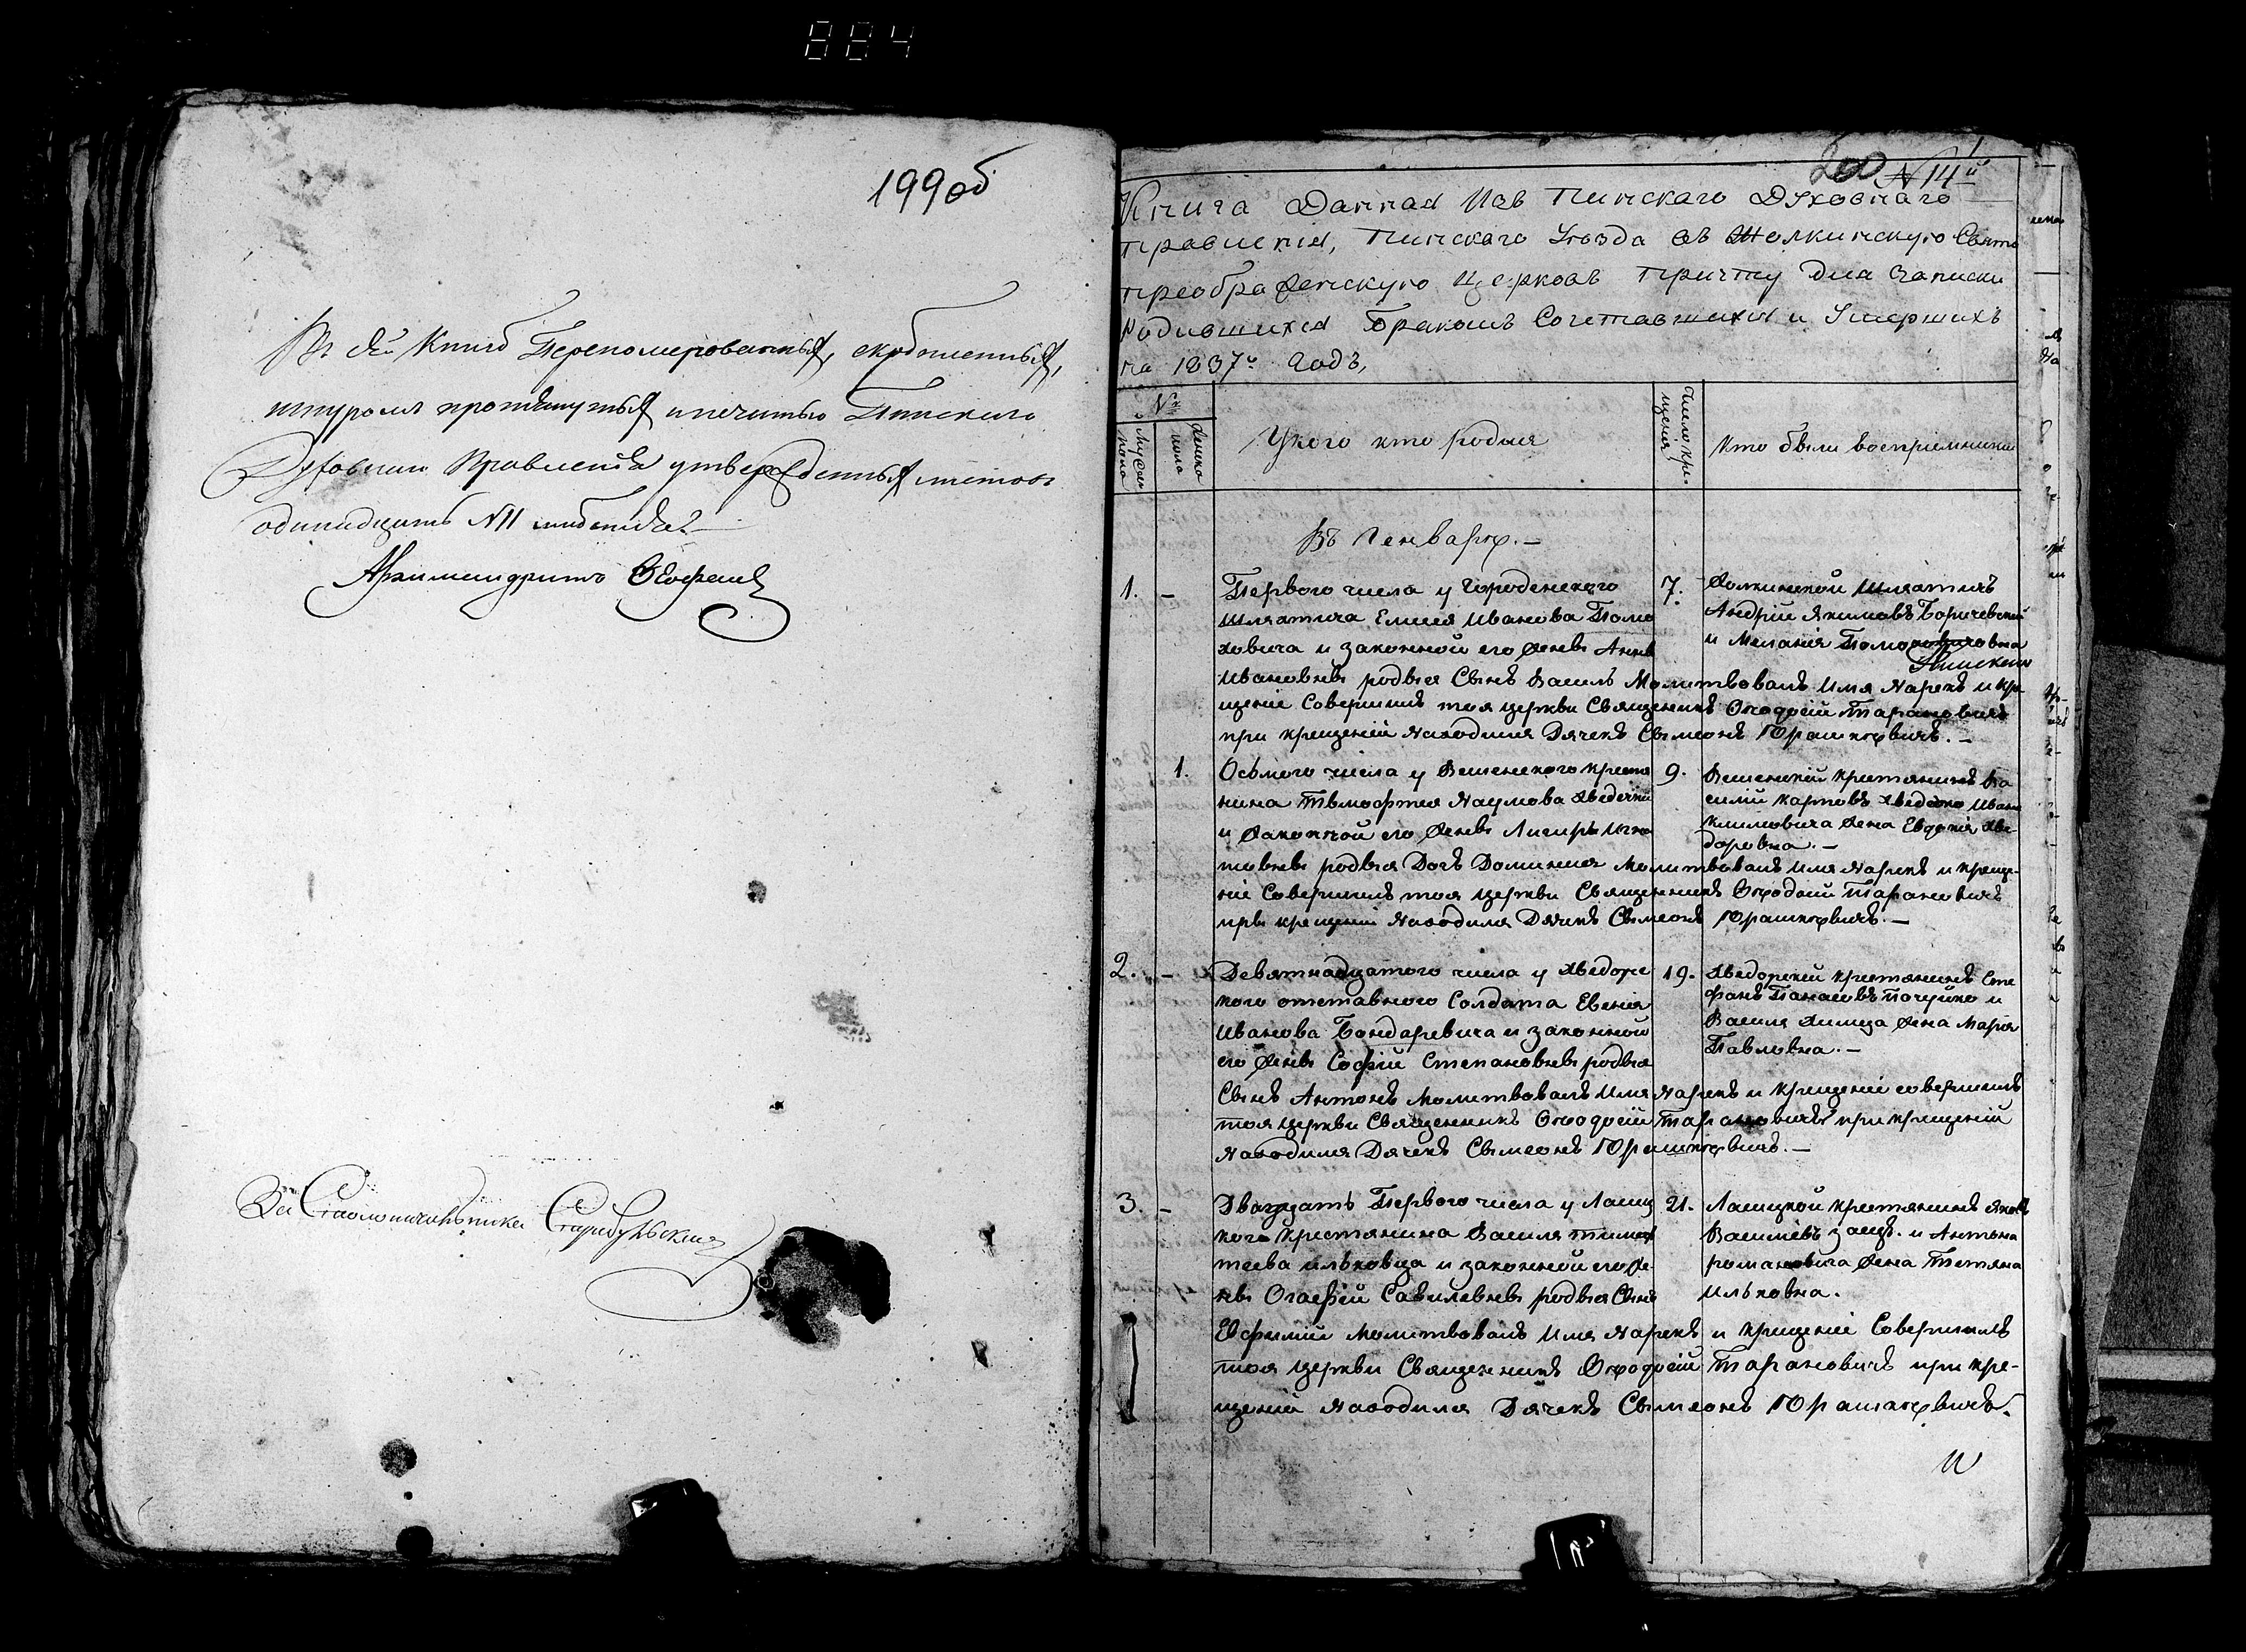 884
199об
Въ сей Книгѣ Перепомерованныхъ, скрѣпленныхъ,
шнуромъ протянутыхъ и печатью Пинскаго
Духовнаго Правленія утвержденныхъ листовъ
одинадцать N11 имѣется
Архимандритъ
За Столоначальника
1
200 N14й
Книга Данная Изъ Пинскаго Духовнаго
правленія, Пинскаго Уѣзда въ Жолкинскую Свято
преображенскую Церковь Причту для Записки
Родившихся Бракомъ Сочетавшихся и Умершихъ
на 1837й Годъ,
№
Мужеска пола
Женска пола
У кого кто родился
Число крещенія
Кто были воспріемники
Въ Генварѣ. —
1. –
Первого числа у Городенского
Шляхтича Елисея Иванова Поло
ховича и законной его женѣ Аннѣ
Ивановнѣ родься Сынъ Василь Молитвовалъ Имя Нарекъ и кре-
щеніе Совершилъ тоя церкви Священникъ Ѳеодосій Тарановичъ
при крещеніи Находился Дячекъ Сымеонъ Юрашкевичъ. —
7.
Жолкинской Шляхтичъ
Андрій Якимовъ Боричевскій
и Меланія
1.
Осьмого числа у Вешенского кристя
нина Тымофтея Наумова Хведечки
и Законной его Женѣ
родься Дочъ Домникия Молитвовалъ Имя Нарекъ и креще-
ніе Совершилъ тоя церкви Священникъ Ѳеодосій Тарановичъ
при крещеніи Находился Дячекъ Сымеонъ Юрашкевичъ. —
9.
Вешенскій кристянинъ Ва
силій Карповъ Хведечко Ивана
Климовича Жена Евдокія Хве-
доровна. —
2. –
Девятнадцатого числа у Хведорс
кого отставного Солдата Евсенія
Иванова Бондаревича и законной
его Женѣ Софіи Степановнѣ родься
Сынъ Антонъ Молитвовалъ Имя Нарекъ и крещеніе совершилъ
тоя церкви Священникъ Ѳеодосій Тарановичъ при крещеніи
Находился Дячекъ Сымеонъ Юрашкевичъ. —
19.
Хведорскій кристянинъ Сте
фанъ Панасовъ Почуйко и
Василя Химица Жена Марія
Павловна. —
3. –
Дватцать Первого числа у Лашиц
кого Кристянина Василя Тимох
теева Ильковца и законной его Же
нѣ Огафіи Савилевнѣ родься Сынъ
Евфимій Молитвовалъ Имя Нарекъ и крещеніе Совершилъ
тоя церкви Священникъ Ѳеодосій Тарановичъ при кре-
щеніи Находился Дячекъ Сымеонъ Юрашкевичъ.
21.
Лашицкой кристянинъ Яковъ
Васильевъ Заецъ. и Антона
романовича Жена Тетяна
Ильковна.